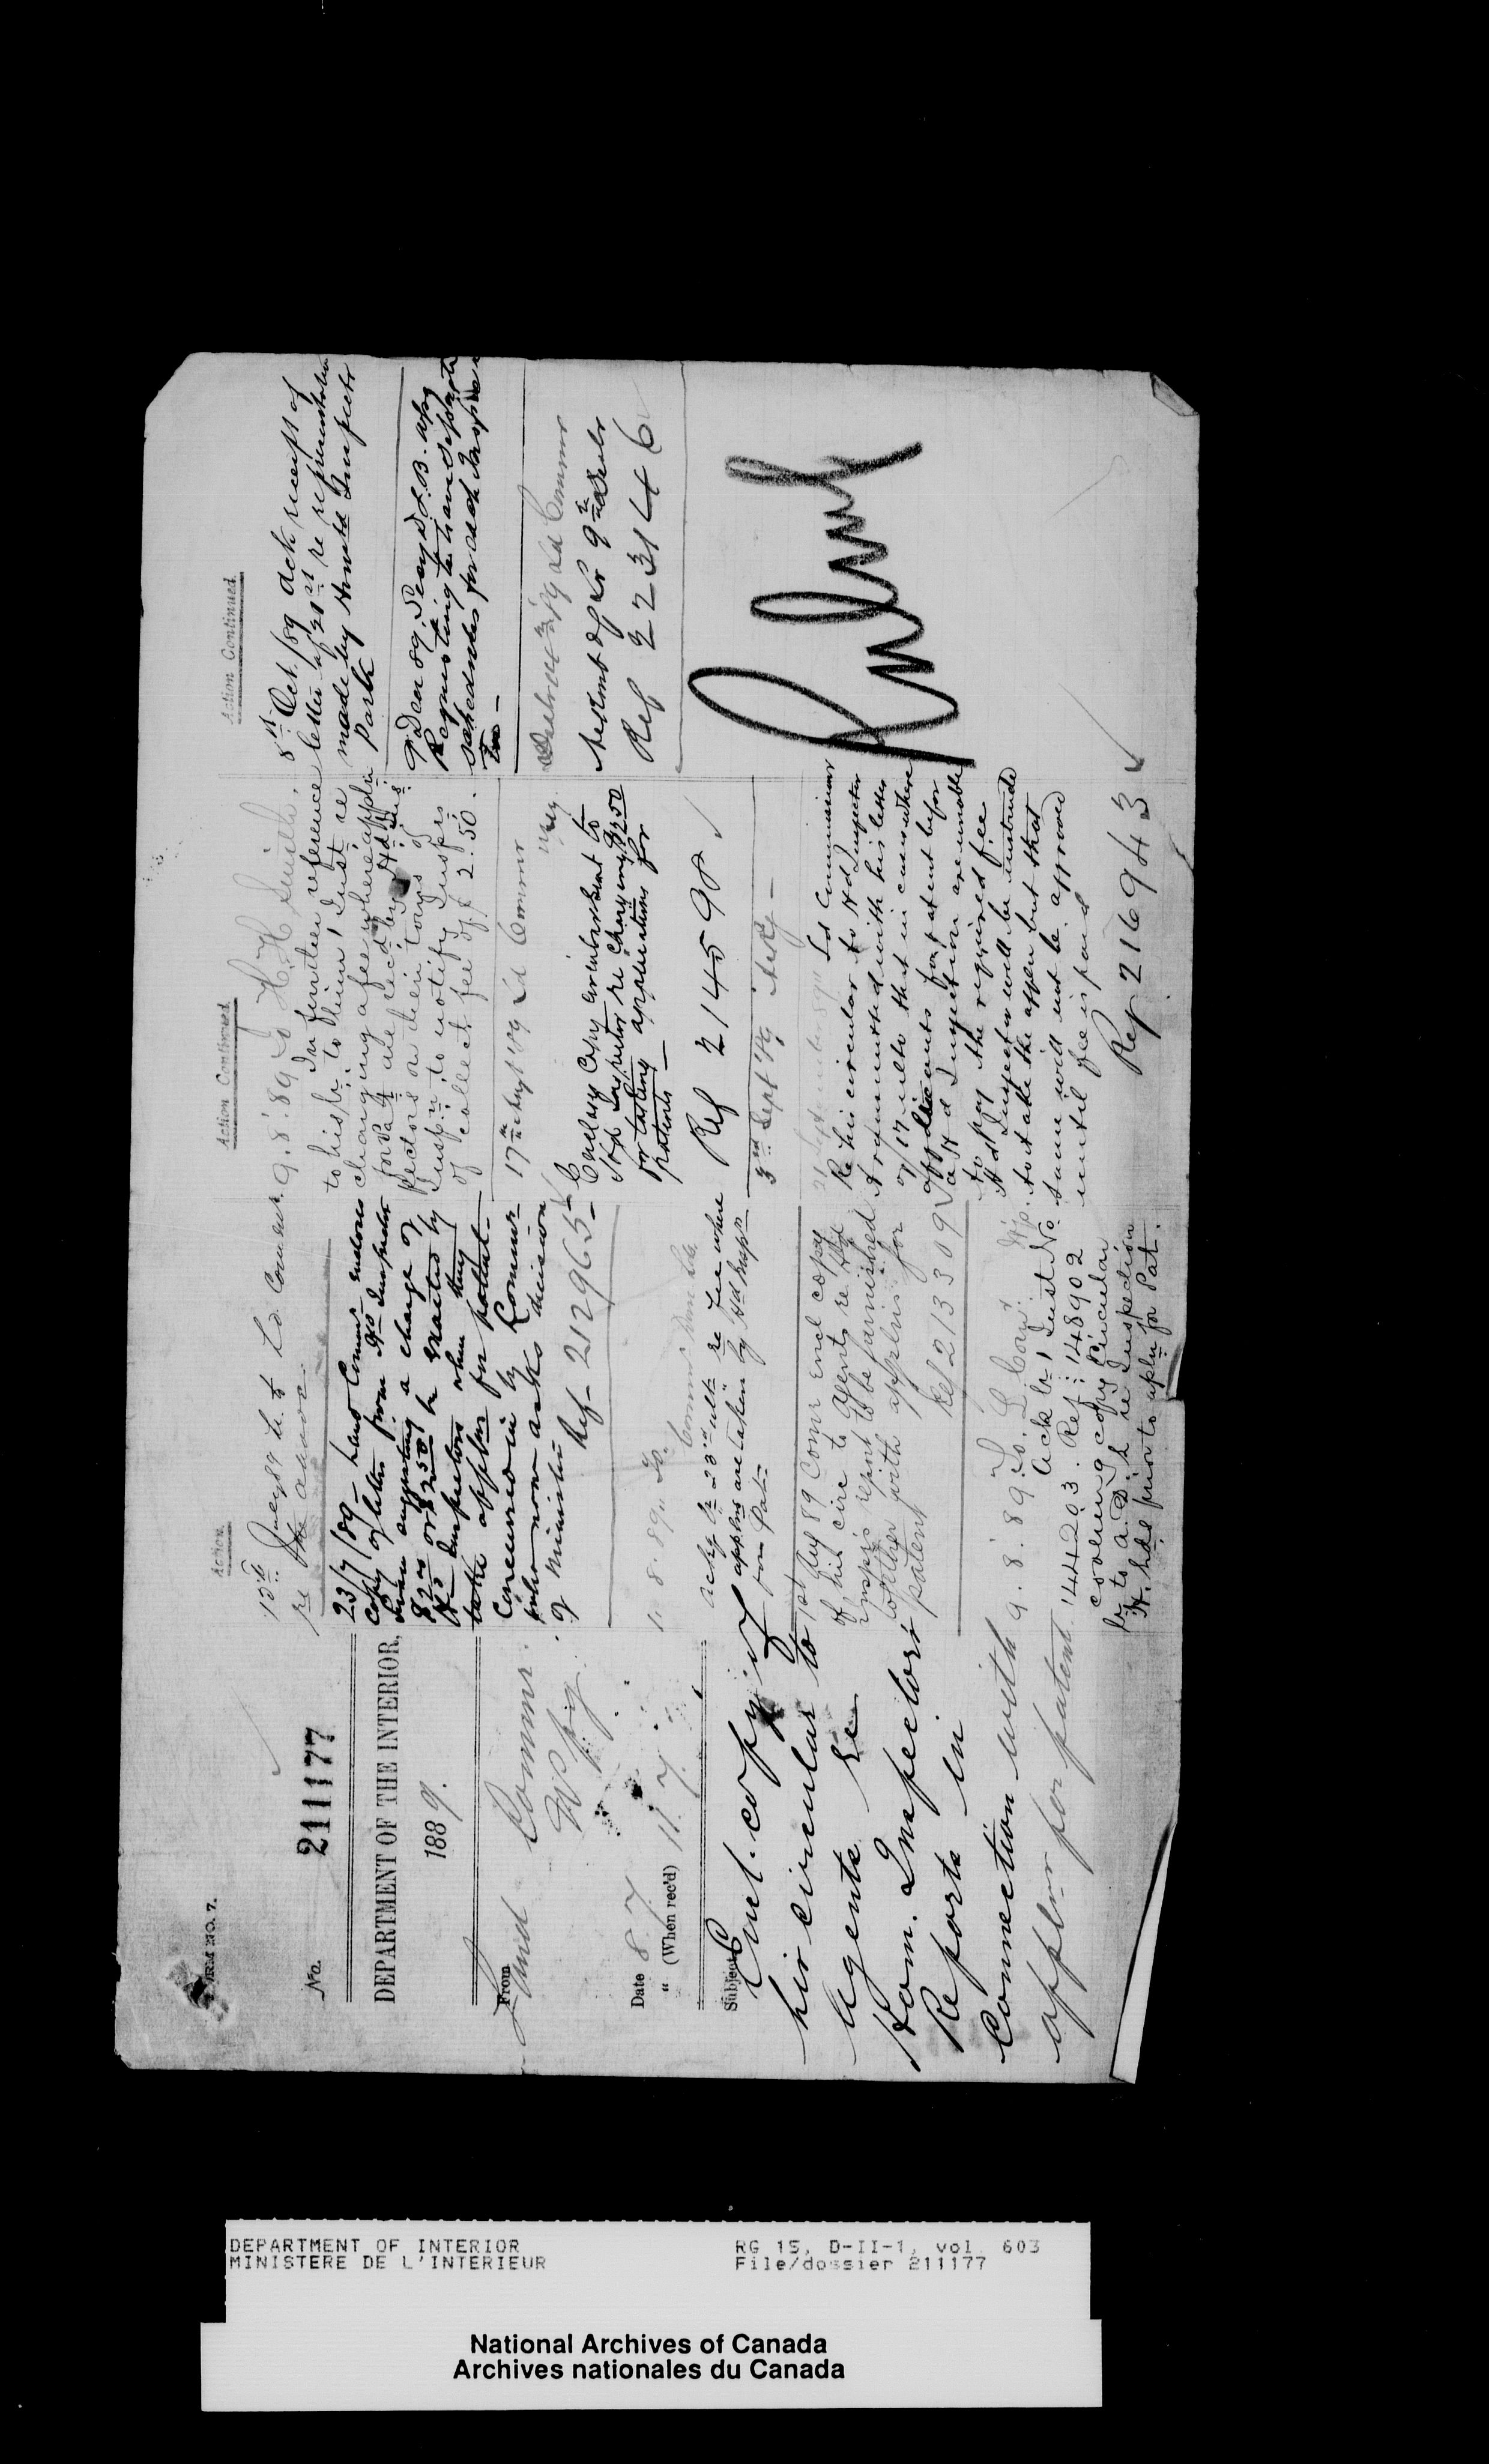 FORM NO. 7.
No. 211177
DEPARTMENT OF THE INTERIOR,
1889.
From
Land Commr.
Wpg.
Date 8. 7.
" (When rec'd) 11. 7.
Subject
Encl. copy of
his circular to
Agents re
Hom. Inspectors
Reports in
Connection with
appln for patent
Action.
13th July 89 to Ld. Commr.
re the above
23/7/89 Land Commr encloses
copy of letter from Hd Inspector
suggesting a charge of
or $2.50 be exacted by
Hd Inspectors when they
take applns for patent
Concurred in by Commr
who now asks decision
of Minister
Ref 212965
1. 8. 89. To Commr Dom Lds
ackg lr 23rd ult re Fee where
applns are taken by Hd Insprs
for Pat
1st Aug 89 Comr encl copy
of his circ to Agents re Hd
Insprs report to be furnished
together with applns for
patent
Ref 213309
9. 8. 89. To L. Com.
Ack lr 1 Inst No.
144203. Ref: 148902
covering copy Circular
lr to a D. L. re Inspection
H. hds prior to appln for Pat.
Action Continued
9. 8. 89 to H. H. Smith.
In further reference
to his lr to him 1 Inst re
charging a fee where appln
for Pat are rec'd by Hd Ins
pectors on their tours of
Insp.n to notify Insprs
of collect fee of $2.50.
17th Augt '89 Ld Commr
Wpg
Encloses Copy circular sent to
Hd Inspector re charging $2.50
for taking applications for
patents
Ref 214598
3rd Sept '89
Ld Commissioner
Re his circular to Hd Inspector
transmitted with his letter
of 17 ulto that in cases where
applicants for patent before
a Hd Inspector are unable
to pay the required fee
Hd Inspector will be instructed
to take the appln but that
same will not be approved
until fee is paid
Ref 216943
Action Continued
8th Oct. /89 ack receipt of
letter of 21st re representation
made by Homstd Inspector
Park
9 Dec 89. Secy D.L.B. Wpg
Requesting to have separate
schedules for each
Ref 223146
DEPARTMENT OF INTERIOR
MINISTERE DE L'INTERIEUR
RG 15, D-II-1, vol. 603
File/dossier 211177
National Archives of Canada
Archives nationales du Canada